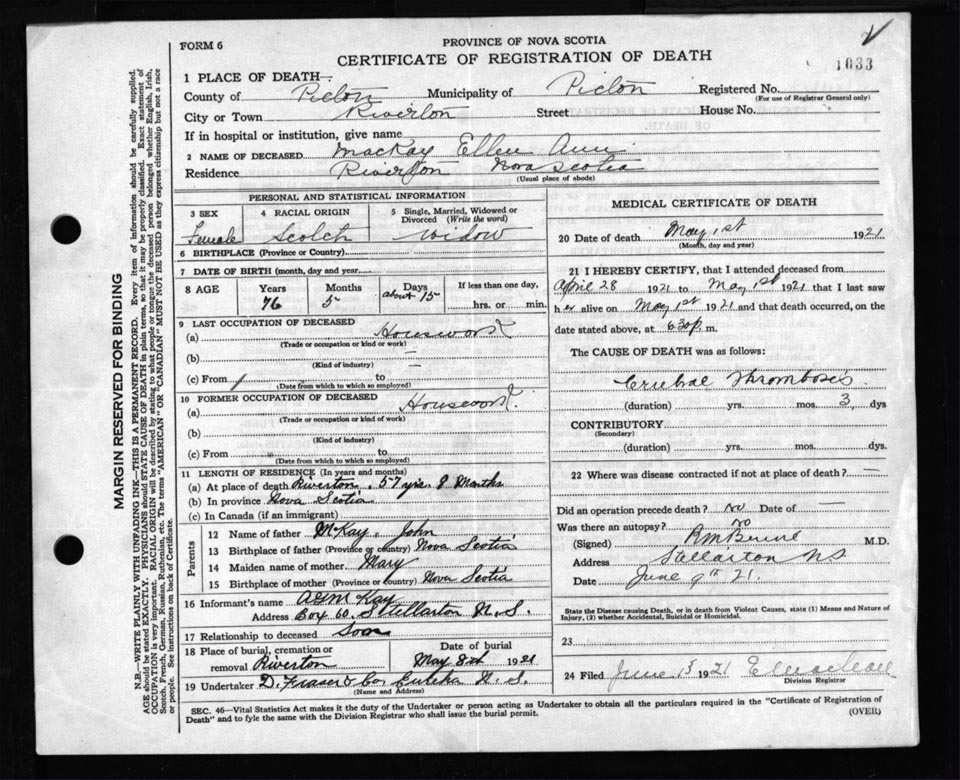 FORM 6
PROVINCE OF NOVA SCOTIA
CERTIFICATE OF REGISTRATION OF DEATH
1033
1 PLACE OF DEATH—
County of Picton Municipality of Picton Registered No.
(For use of Registrar General only)
City or Town Riverton Street House No.
If in hospital or institution, give name
2 NAME OF DECEASED MacKay Ellen Ann
Residence Riverton Nova Scotia
(Usual place of abode)
PERSONAL AND STATISTICAL INFORMATION
3 SEX Female
4 RACIAL ORIGIN Scotch
5 Single, Married, Widowed or Divorced (Write the word) Widow
6 BIRTHPLACE (Province or Country)
7 DATE OF BIRTH (month, day and year)
8 AGE Years 76 Months 5 Days about 15 If less than one day, hrs. or min.
9 LAST OCCUPATION OF DECEASED
(a) Housework
(Trade or occupation or kind of work)
(b) —
(Kind of industry)
(c) From to
(Date from which to which so employed)
10 FORMER OCCUPATION OF DECEASED
(a) Housework
(Trade or occupation or kind of work)
(b)
(Kind of industry)
(c) From to
(Date from which to which so employed)
11 LENGTH OF RESIDENCE (In years and months)
(a) At place of death Riverton. 57 yrs. 8 Months
(b) In province Nova Scotia
(c) In Canada (if an immigrant)
Parents
12 Name of father McKay, John
13 Birthplace of father (Province or country) Nova Scotia
14 Maiden name of mother Mary
15 Birthplace of mother (Province or country) Nova Scotia
16 Informant's name McKay
Address Box 60. Stellarton N.S.
17 Relationship to deceased Son
18 Place of burial, cremation or removal Riverton
Date of burial May 3rd 1921
19 Undertaker D. Fraser & Co. Eureka N.S.
(Name and Address)
MEDICAL CERTIFICATE OF DEATH
20 Date of death May 1st 1921
(Month, day and year)
21 I HEREBY CERTIFY, that I attended deceased from
April 28 1921 to May 1st 1921 that I last saw
her alive on May 1st 1921 and that death occurred, on the
date stated above, at 6.30 p. m.
The CAUSE OF DEATH was as follows:
Criebral Thrombosis
(duration) yrs. mos. 3 dys
CONTRIBUTORY
(Secondary)
(duration) yrs. mos. dys
22 Where was disease contracted if not at place of death? —
Did an operation precede death? No Date of —
Was there an autopsy? No
(Signed) M.D.
Address Stellarton NS
Date June 9th 21.
State the Disease causing Death, or in death from Violent Causes, state (1) Means and Nature of
Injury, (2) whether Accidental, Suicidal or Homicidal.
23
24 Filed June 1921
Division Registrar
SEC. 46—Vital Statistics Act makes it the duty of the Undertaker or person acting as Undertaker to obtain all the particulars required in the "Certificate of Registration of
Death" and to fyle the same with the Division Registrar who shall issue the burial permit.
(OVER)
MARGIN RESERVED FOR BINDING
N.B.—WRITE PLAINLY WITH UNFADING INK—THIS IS A PERMANENT RECORD. Every item of information should be carefully supplied.
AGE should be stated EXACTLY. PHYSICIANS should STATE CAUSE OF DEATH in plain terms, so that it may be properly classified. Exact statement of
OCCUPATION is very important. RACIAL ORIGIN will be described by stating to what people or tongue the deceased person belonged whether English, Irish,
Scotch, French, German, Russian, Ruthenian, etc. The terms "AMERICAN" OR "CANADIAN" MUST NOT BE USED as they express citizenship but not a race
or people. See instructions on back of Certificate.